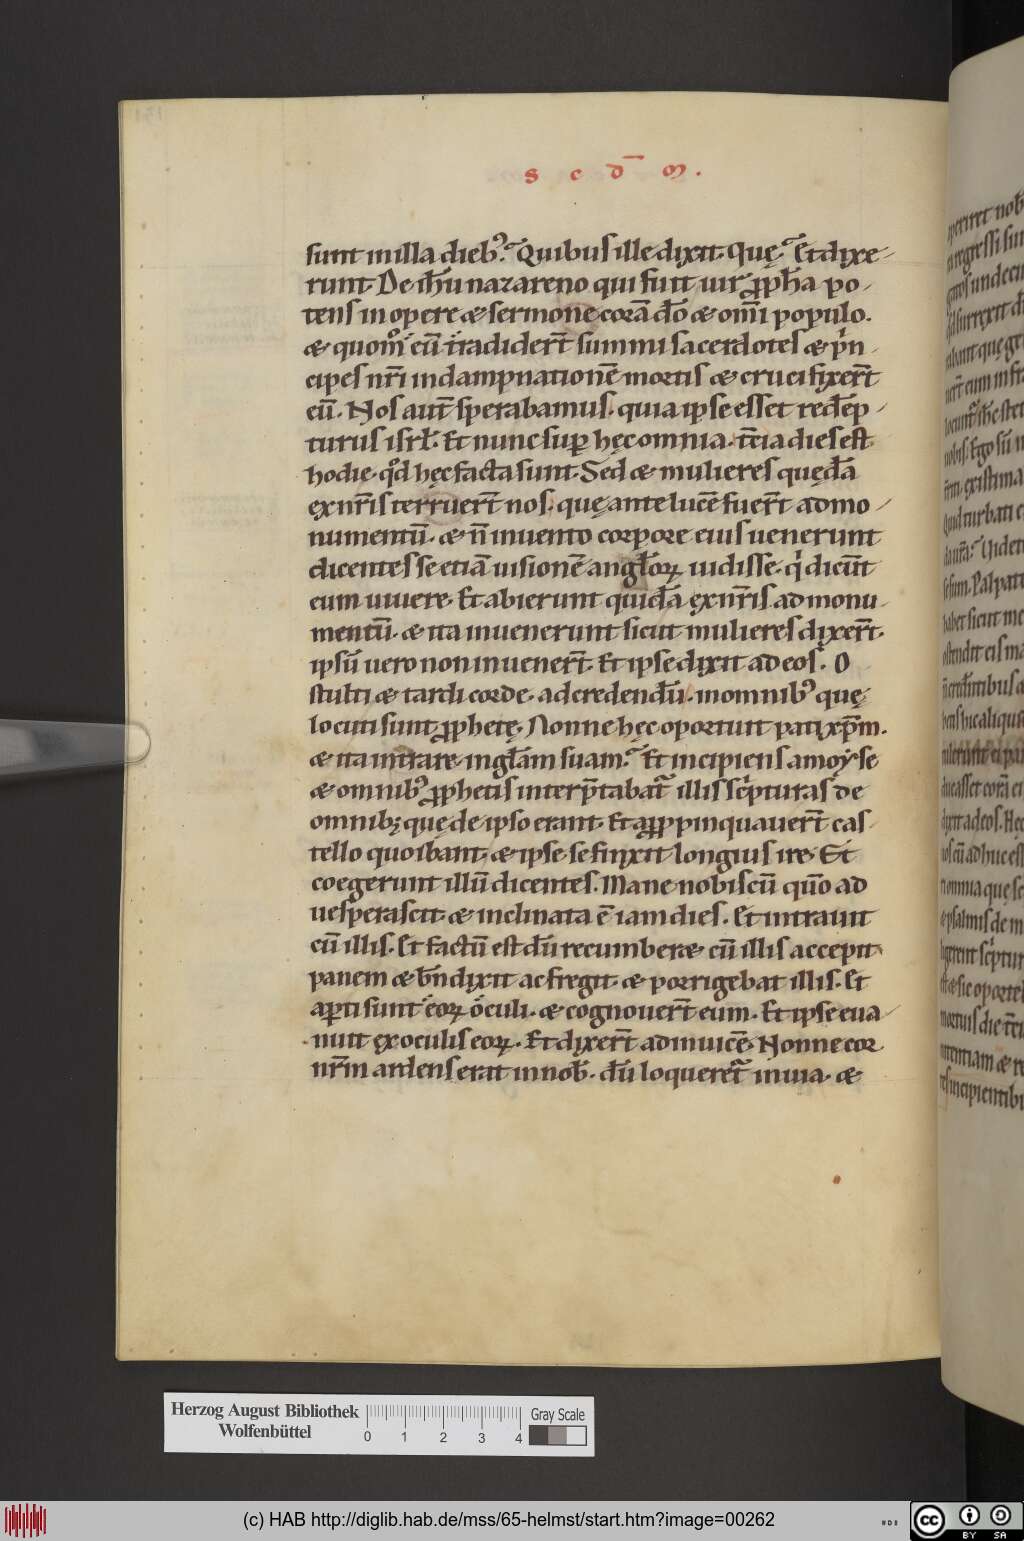 s c d̅ m .
sunt in illa dieb᷒? Quibus ille dixit. Quę? Et dixe-
runt. De ih̅u nazareno qui fuit uir ꝓph̅a po-
tens in opere & sermone corā do̅ & om̅i populo.
& quom̅ eū tradider̅t summi sacerdotes & p̍n
cipes nr̅i in dampnationē mortis & crucifixer̅t
eū. Nos aut̅ sperabamus. quia ipse esset redēp-
turus isrl̅. Et nunc sup̅ hęc omnia. t̅cia dies est
hodie. qd̅ hęc facta sunt. Sed & mulieres quędā
ex nr̅is terruer̅t nos. quę ante lucē fuer̅t ad mo-
numentū. & n̅ inuento corpore eius uenerunt
dicentes se etiā uisionē angl̅oꝝ uidisse. q̍ dicūt
eum uiuere. Et abierunt quidā ex nr̅is ad monu
mentū. & ita inuenerunt sicut mulieres dixer̅t.
ipsū uero non inuener̅t. Et ipse dixit ad eos. O
stulti & tardi corde. ad credendū. in omnib᷒ quę
locuti sunt ꝓphetę. Nonne hęc oportuit pati xp̅m.
& ita intrare in gl̅am suam? Et incipiens a moẏse
& omnib᷒ ꝓphetis interp̅tabat᷑ illis sc̍pturas de
omnibꝫ quę de ipso erant. Et aꝓpinquauer̅t cas-
tello quo ibant. & ipse se finxit longius ire. Et
coegerunt illū dicentes. Mane nobiscū qūo ad
uesperascit. & inclinata ē iam dies. Et intrauit
cū illis. Et factū est dū recumber& cū illis accepit
panem & bn̅dixit ac fregit. & porrigebat illis. Et
aꝑti sunt eoꝝ oculi. & cognouer̅t eum. Et ipse eua-
nuit ex oculis eoꝝ. Et dixer̅t ad inuicē. Nonne cor
nr̅m ardens erat in nob̅. dū loqueret᷑ in uia. &
Herzog August Bibliothek
Wolfenbüttel
Gray Scale
0 1 2 3 4
(c) HAB http://diglib.hab.de/mss/65-helmst/start.htm?image=00262
cc BY SA